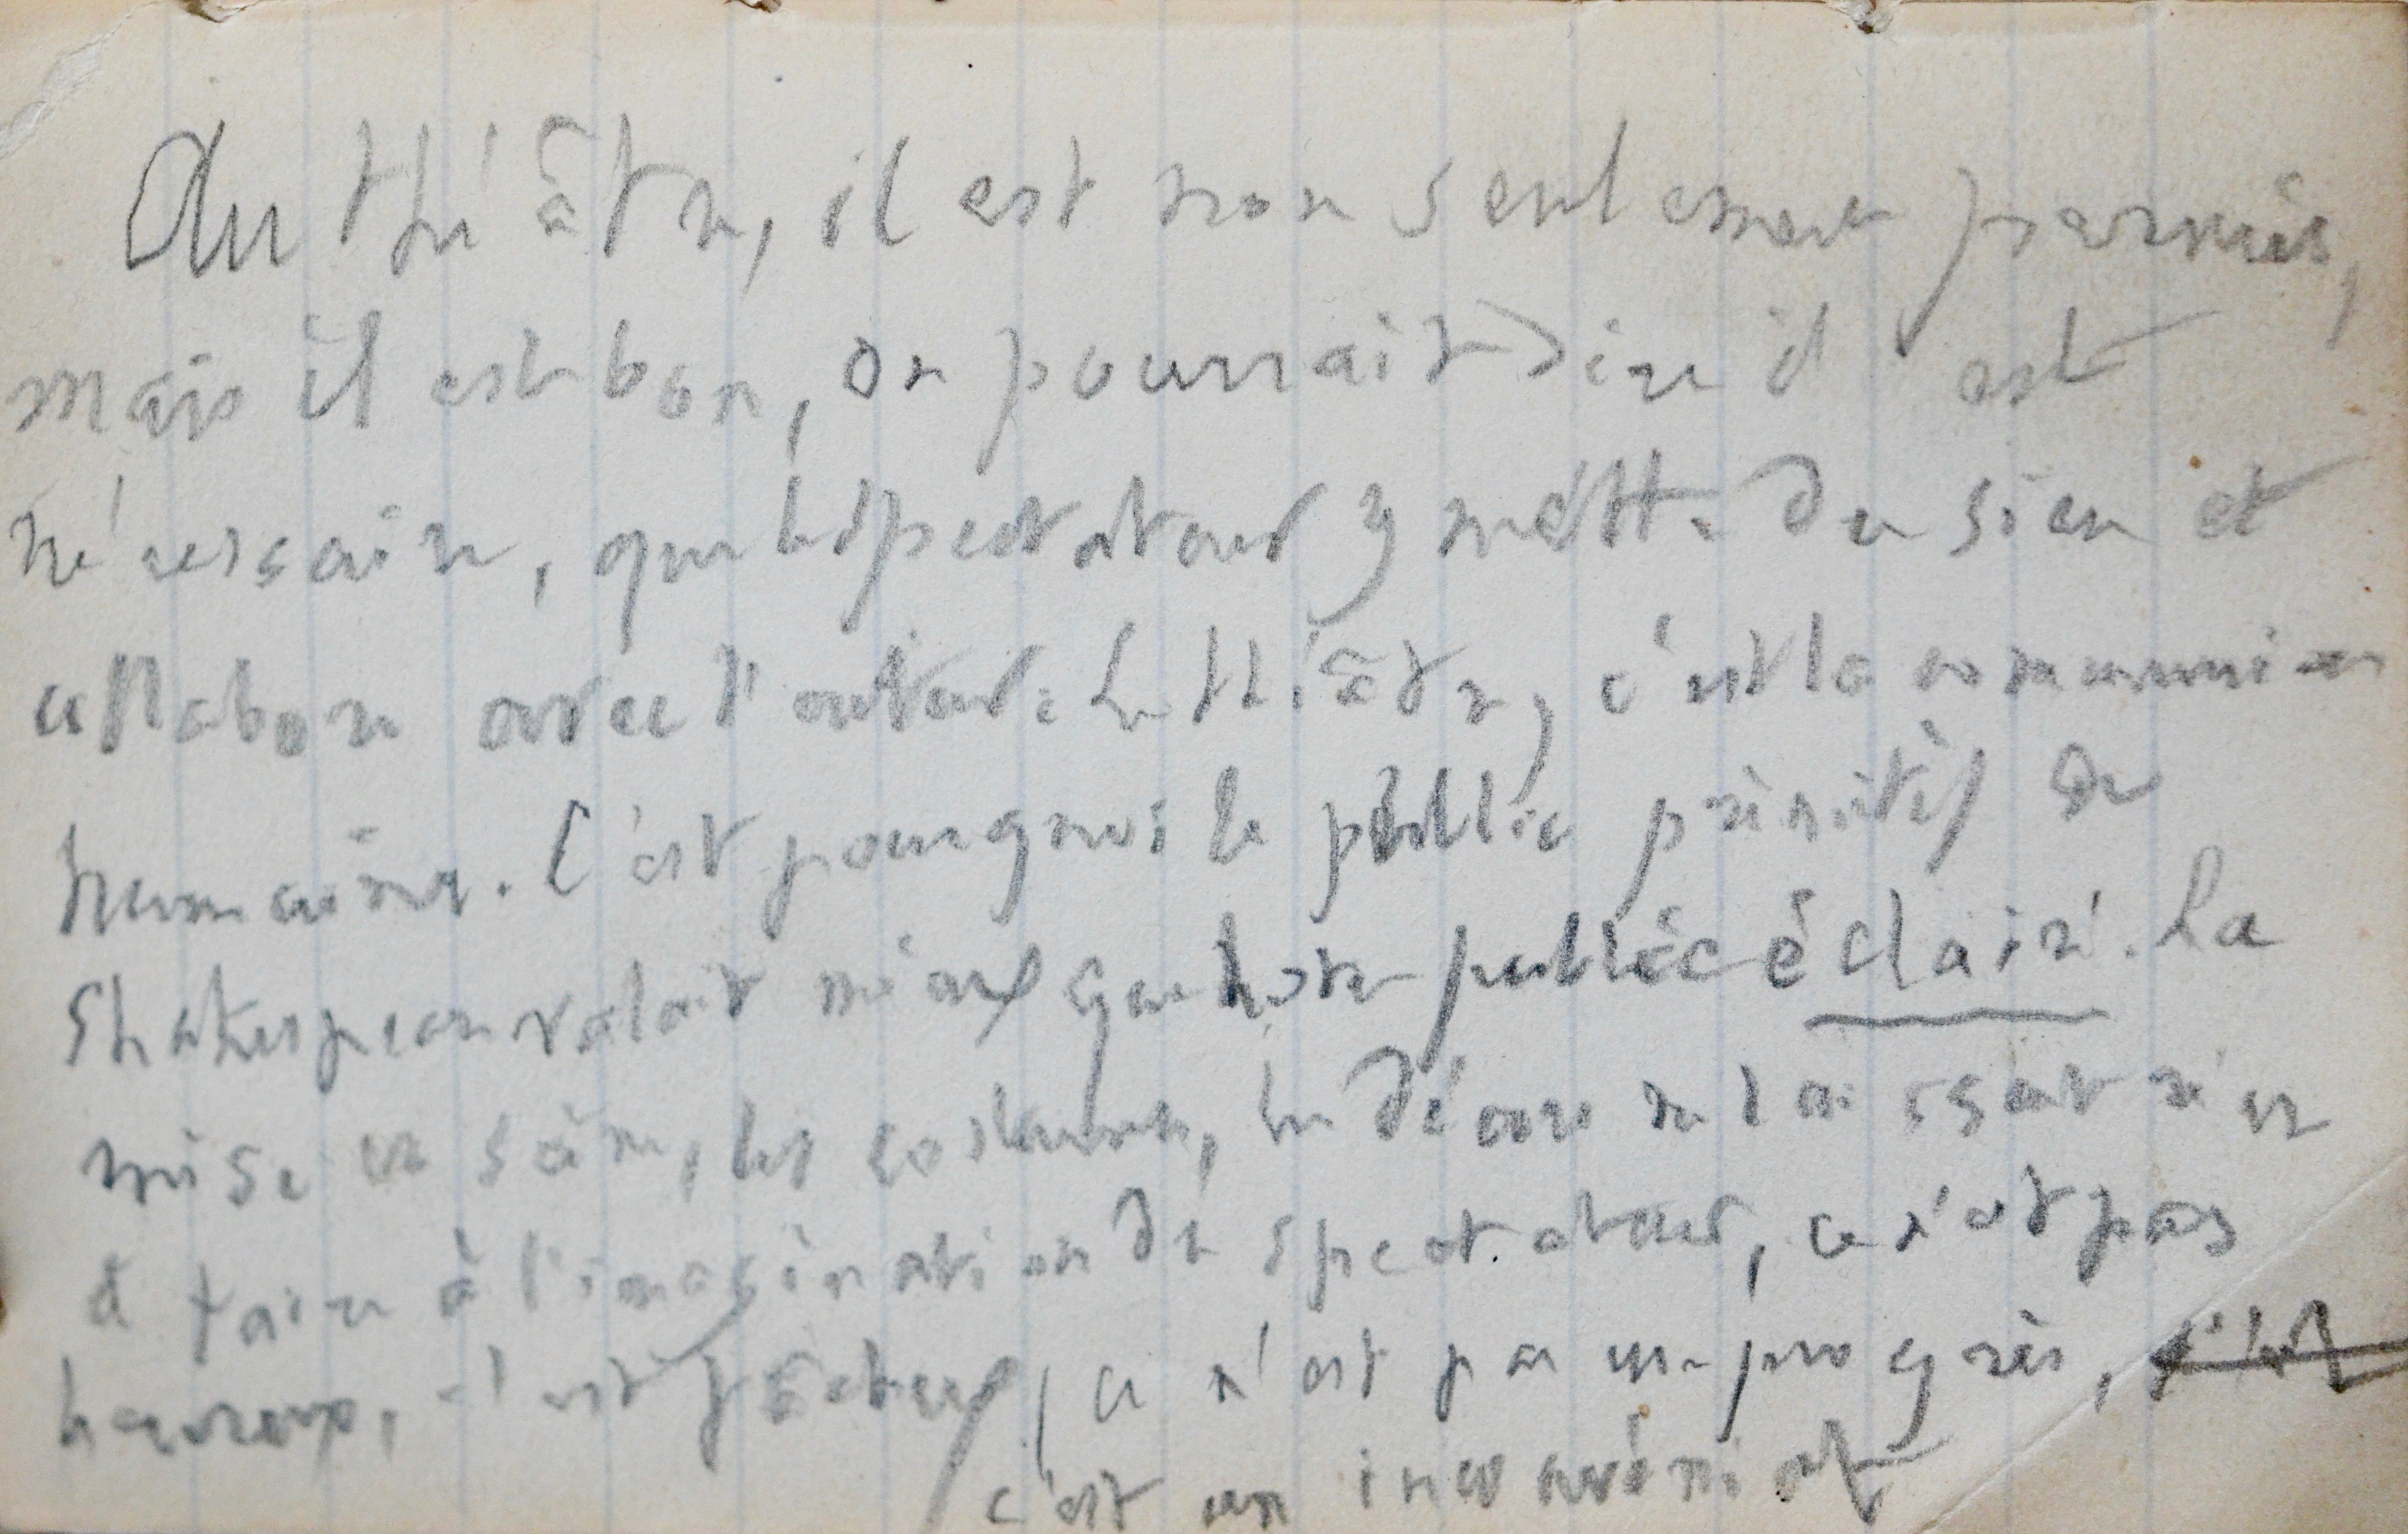 Au théâtre, il est non seulement permis,
mais il est bon, on pourrait dire il est
nécessaire, que le spectateur y mette du sien et
collabore avec l'auteur. Le théâtre, c'est la communion
humaine. C'est pourquoi le public primitif de
Shakespeare valait mieux que notre public éclairé. La
mise en scène, les costumes, les décors ne laissant rien
à faire à l'imagination du spectateur, ce n'est pas
heureux, c'est fâcheux, ce n'est pas un progrès,
c'est un inconvénient